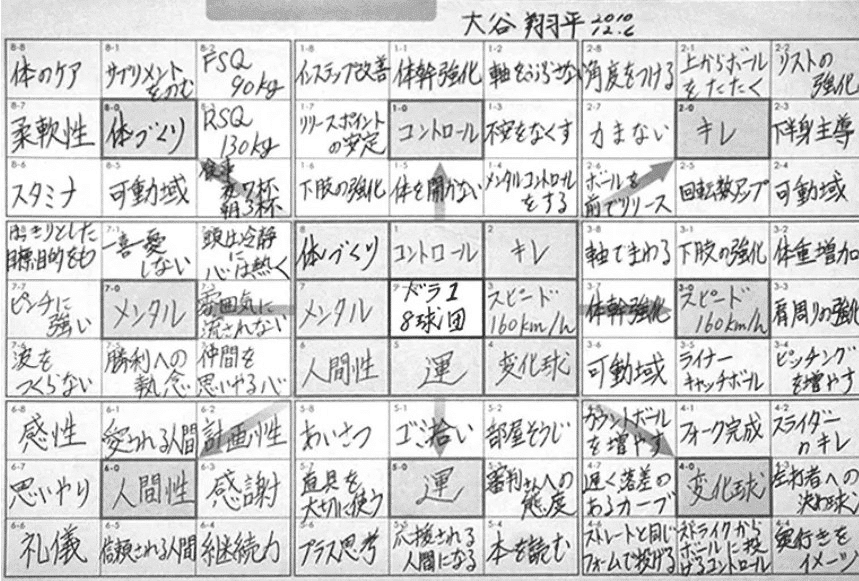 大谷 翔平 2010
12.6
8-8
体のケア
8-1
サプリメント
をのむ
8-2
FSQ
90kg
8-7
柔軟性
8-0
体づくり
8-3
RSQ
130kg
8-6
スタミナ
8-5
可動域
食事
夜7杯
朝3杯
1-8
インステップ改善
1-1
体幹強化
1-2
軸をぶらさない
1-7
リリースポイント
の安定
1-0
コントロール
1-3
不安をなくす
1-6
下肢の強化
1-5
体を開かない
1-4
メンタルコントロール
をする
2-8
角度をつける
2-1
上からボール
をたたく
2-2
リストの
強化
2-7
力まない
2-0
キレ
2-3
下半身主導
2-6
ボールを
前でリリース
2-5
回転数アップ
2-4
可動域
はっきりとした
目標、目的をもつ
7-1
一喜一憂
しない
頭は冷静
に
心は熱く
7-7
ピンチに
強い
7-0
メンタル
雰囲気に
流されない
7-6
波を
つくらない
7-5
勝利への
執念
仲間を
思いやる心
8
体づくり
1
コントロール
2
キレ
7
メンタル
ドラ1
8球団
3
スピード
160km/h
6
人間性
5
運
4
変化球
3-8
軸でまわる
3-1
下肢の強化
3-2
体重増加
3-7
体幹強化
3-0
スピード
160km/h
3-3
肩周りの強化
3-6
可動域
3-5
ライナー
キャッチボール
3-4
ピッチング
を増やす
6-8
感性
6-1
愛される人間
6-2
計画性
6-7
思いやり
6-0
人間性
6-3
感謝
6-6
礼儀
6-5
信頼される人間
6-4
継続力
5-8
あいさつ
5-1
ゴミ拾い
5-2
部屋そうじ
5-7
道具を
大切に使う
5-0
運
審判さんへの
態度
5-6
プラス思考
5-5
応援される
人間になる
5-4
本を読む
カウントボール
を増やす
4-1
フォーク完成
4-2
スライダー
のキレ
4-7
遅く落差の
あるカーブ
4-0
変化球
4-3
左打者への
決め球
4-6
ストレートと同じ
フォームで投げる
ストライクから
ボールに投
げるコントロール
4-4
奥行きを
イメージ